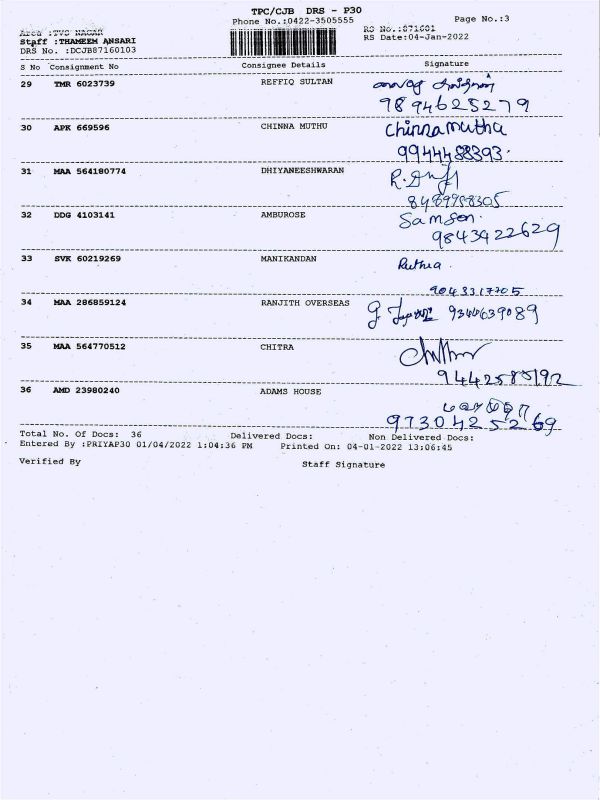 TPC/CJB DRS - P30
Phone No.:0422-3505555 Page No.:3
Area :TVS NAGAR RS No.:871601
Staff :THAMEEM ANSARI RS Date:04-Jan-2022
DRS No. :DCJB87160103
S No Consignment No Consignee Details Signature
29 TMR 6023739 REFFIQ SULTAN
9894625279
30 APK 669596 CHINNA MUTHU Chinnamutha
9944488393.
31 MAA 564180774 DHIYANEESHWARAN
8489958305
32 DDG 4103141 AMBUROSE Samson.
9843422629
33 SVK 60219269 MANIKANDAN Ruthra.
9043317705
34 MAA 286859124 RANJITH OVERSEAS 9344639089
35 MAA 564770512 CHITRA
9442585192
36 AMD 23980240 ADAMS HOUSE
9730425269
Total No. Of Docs: 36 Delivered Docs: Non Delivered Docs:
Entered By :PRIYAP30 01/04/2022 1:04:36 PM Printed On: 04-01-2022 13:06:45
Verified By Staff Signature